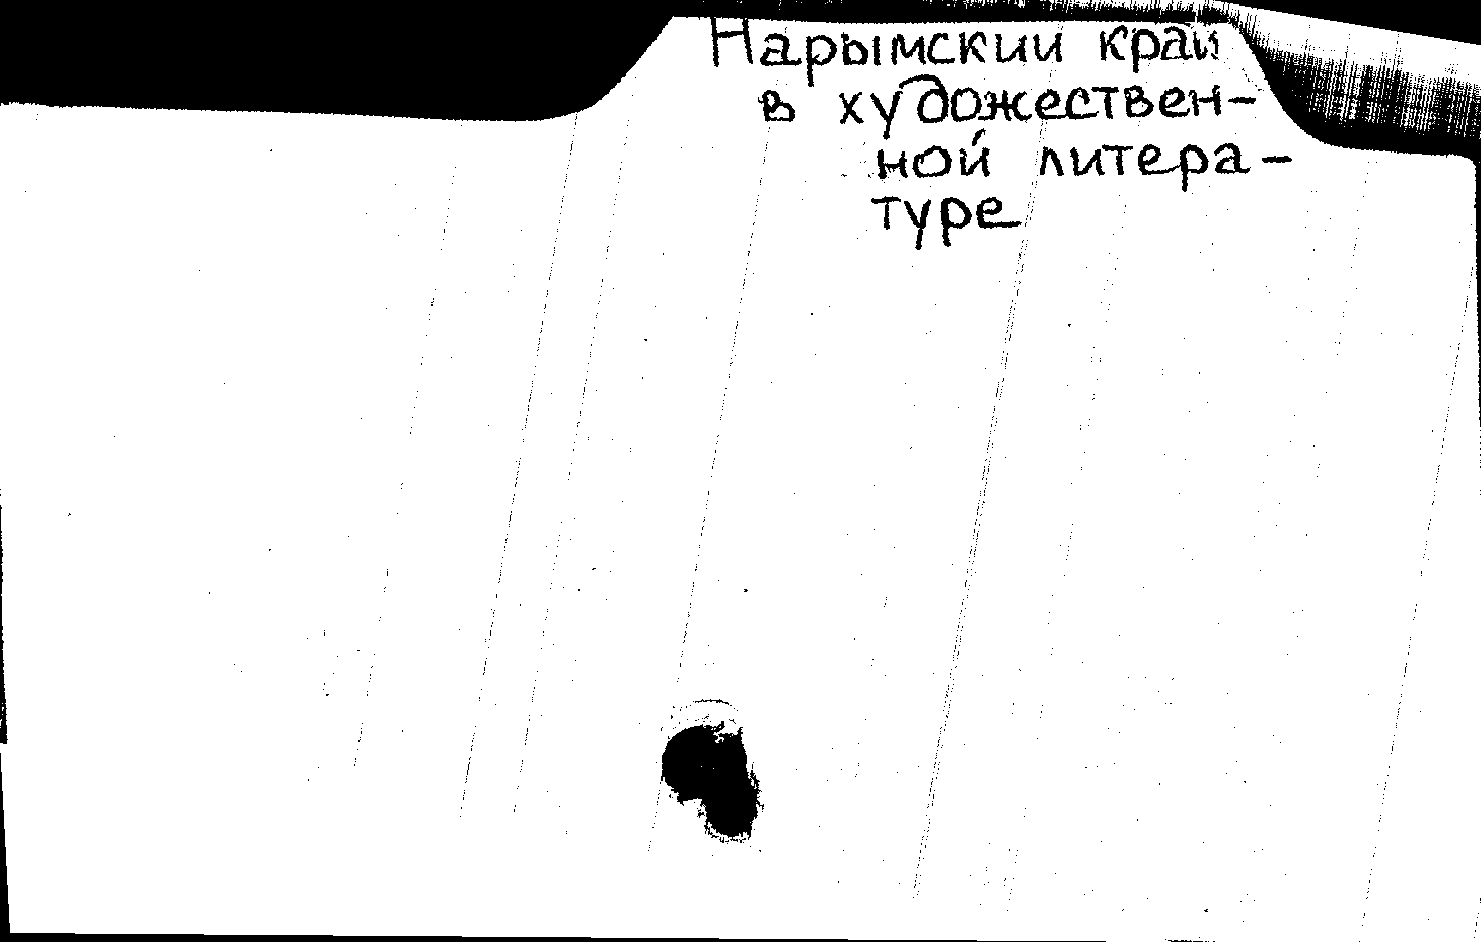 Нарымский край
в художествен-
ной литера-
туре